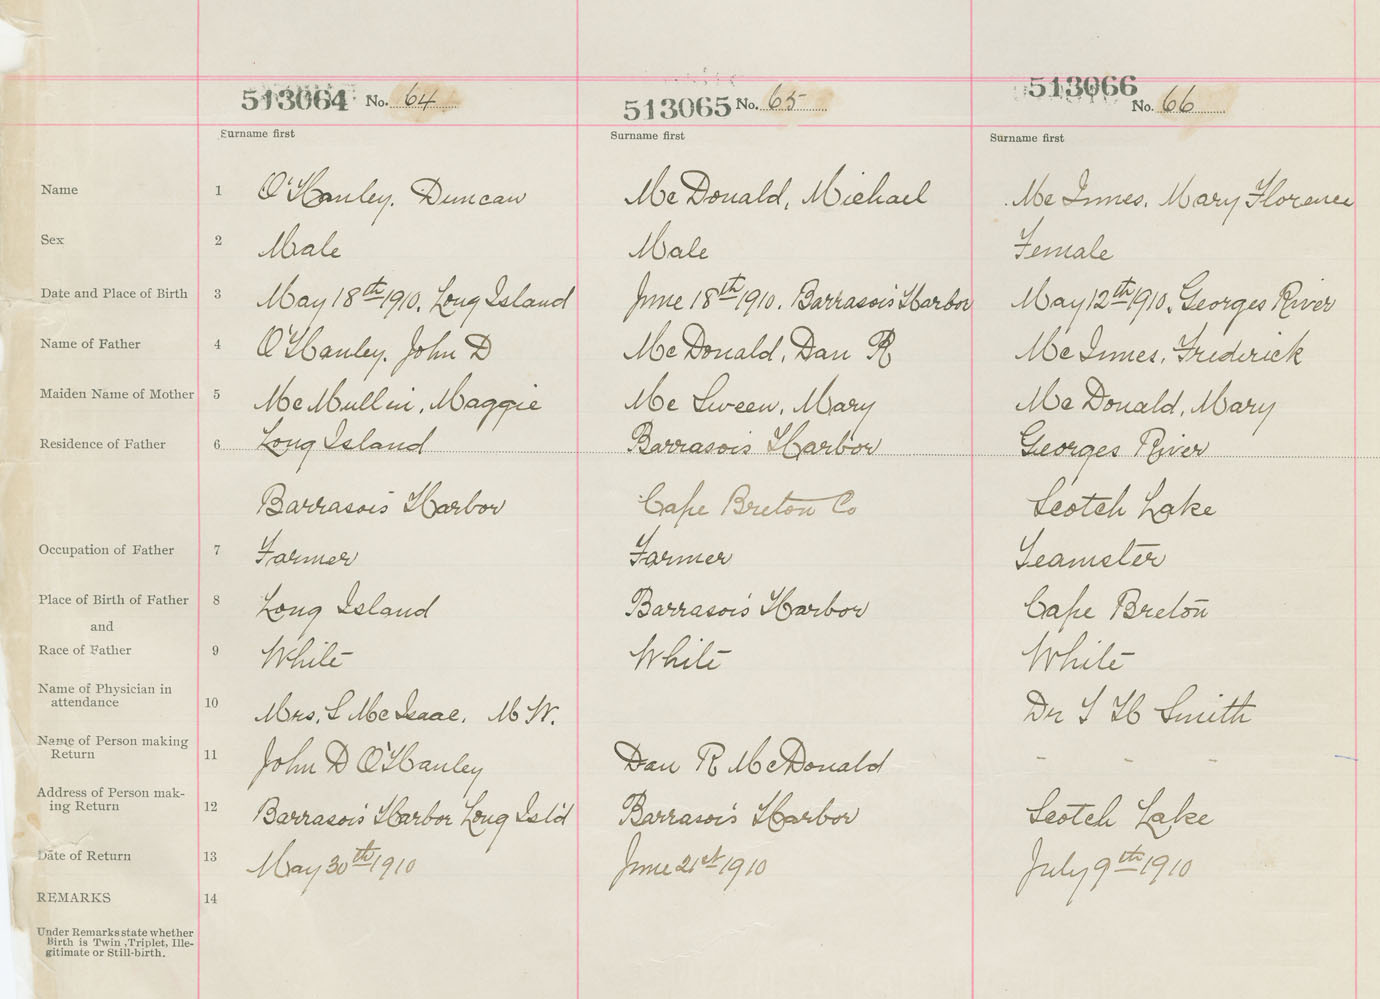 513064 No. 64 513065 No. 65 513066 No. 66
Surname first Surname first Surname first
Name 1 O'Hanley, Duncan McDonald, Michael McInnes, Mary Florence
Sex 2 Male Male Female
Date and Place of Birth 3 May 18th 1910, Long Island June 18th 1910. Barrasois Harbor May 12th 1910. Georges River
Name of Father 4 O'Hanley, John D McDonald, Dan R McInnes, Frederick
Maiden Name of Mother 5 McMullin, Maggie McSween, Mary McDonald, Mary
Residence of Father 6 Long Island Barrasois Harbor Georges River
Barrasois Harbor Cape Breton Co Scotch Lake
Occupation of Father 7 Farmer Farmer Teamster
Place of Birth of Father 8 Long Island Barrasois Harbor Cape Breton
and
Race of Father 9 White White White
Name of Physician in
attendance 10 Mrs. S McIsaac, M W. Dr S H Smith
Name of Person making
Return 11 John D O'Hanley Dan R McDonald - - -
Address of Person mak-
ing Return 12 Barrasois Harbor Long Isl'd Barrasois Harbor Scotch Lake
Date of Return 13 May 30th 1910 June 21st 1910 July 9th 1910
REMARKS 14
Under Remarks state whether
Birth is Twin, Triplet, Ille-
gitimate or Still-birth.